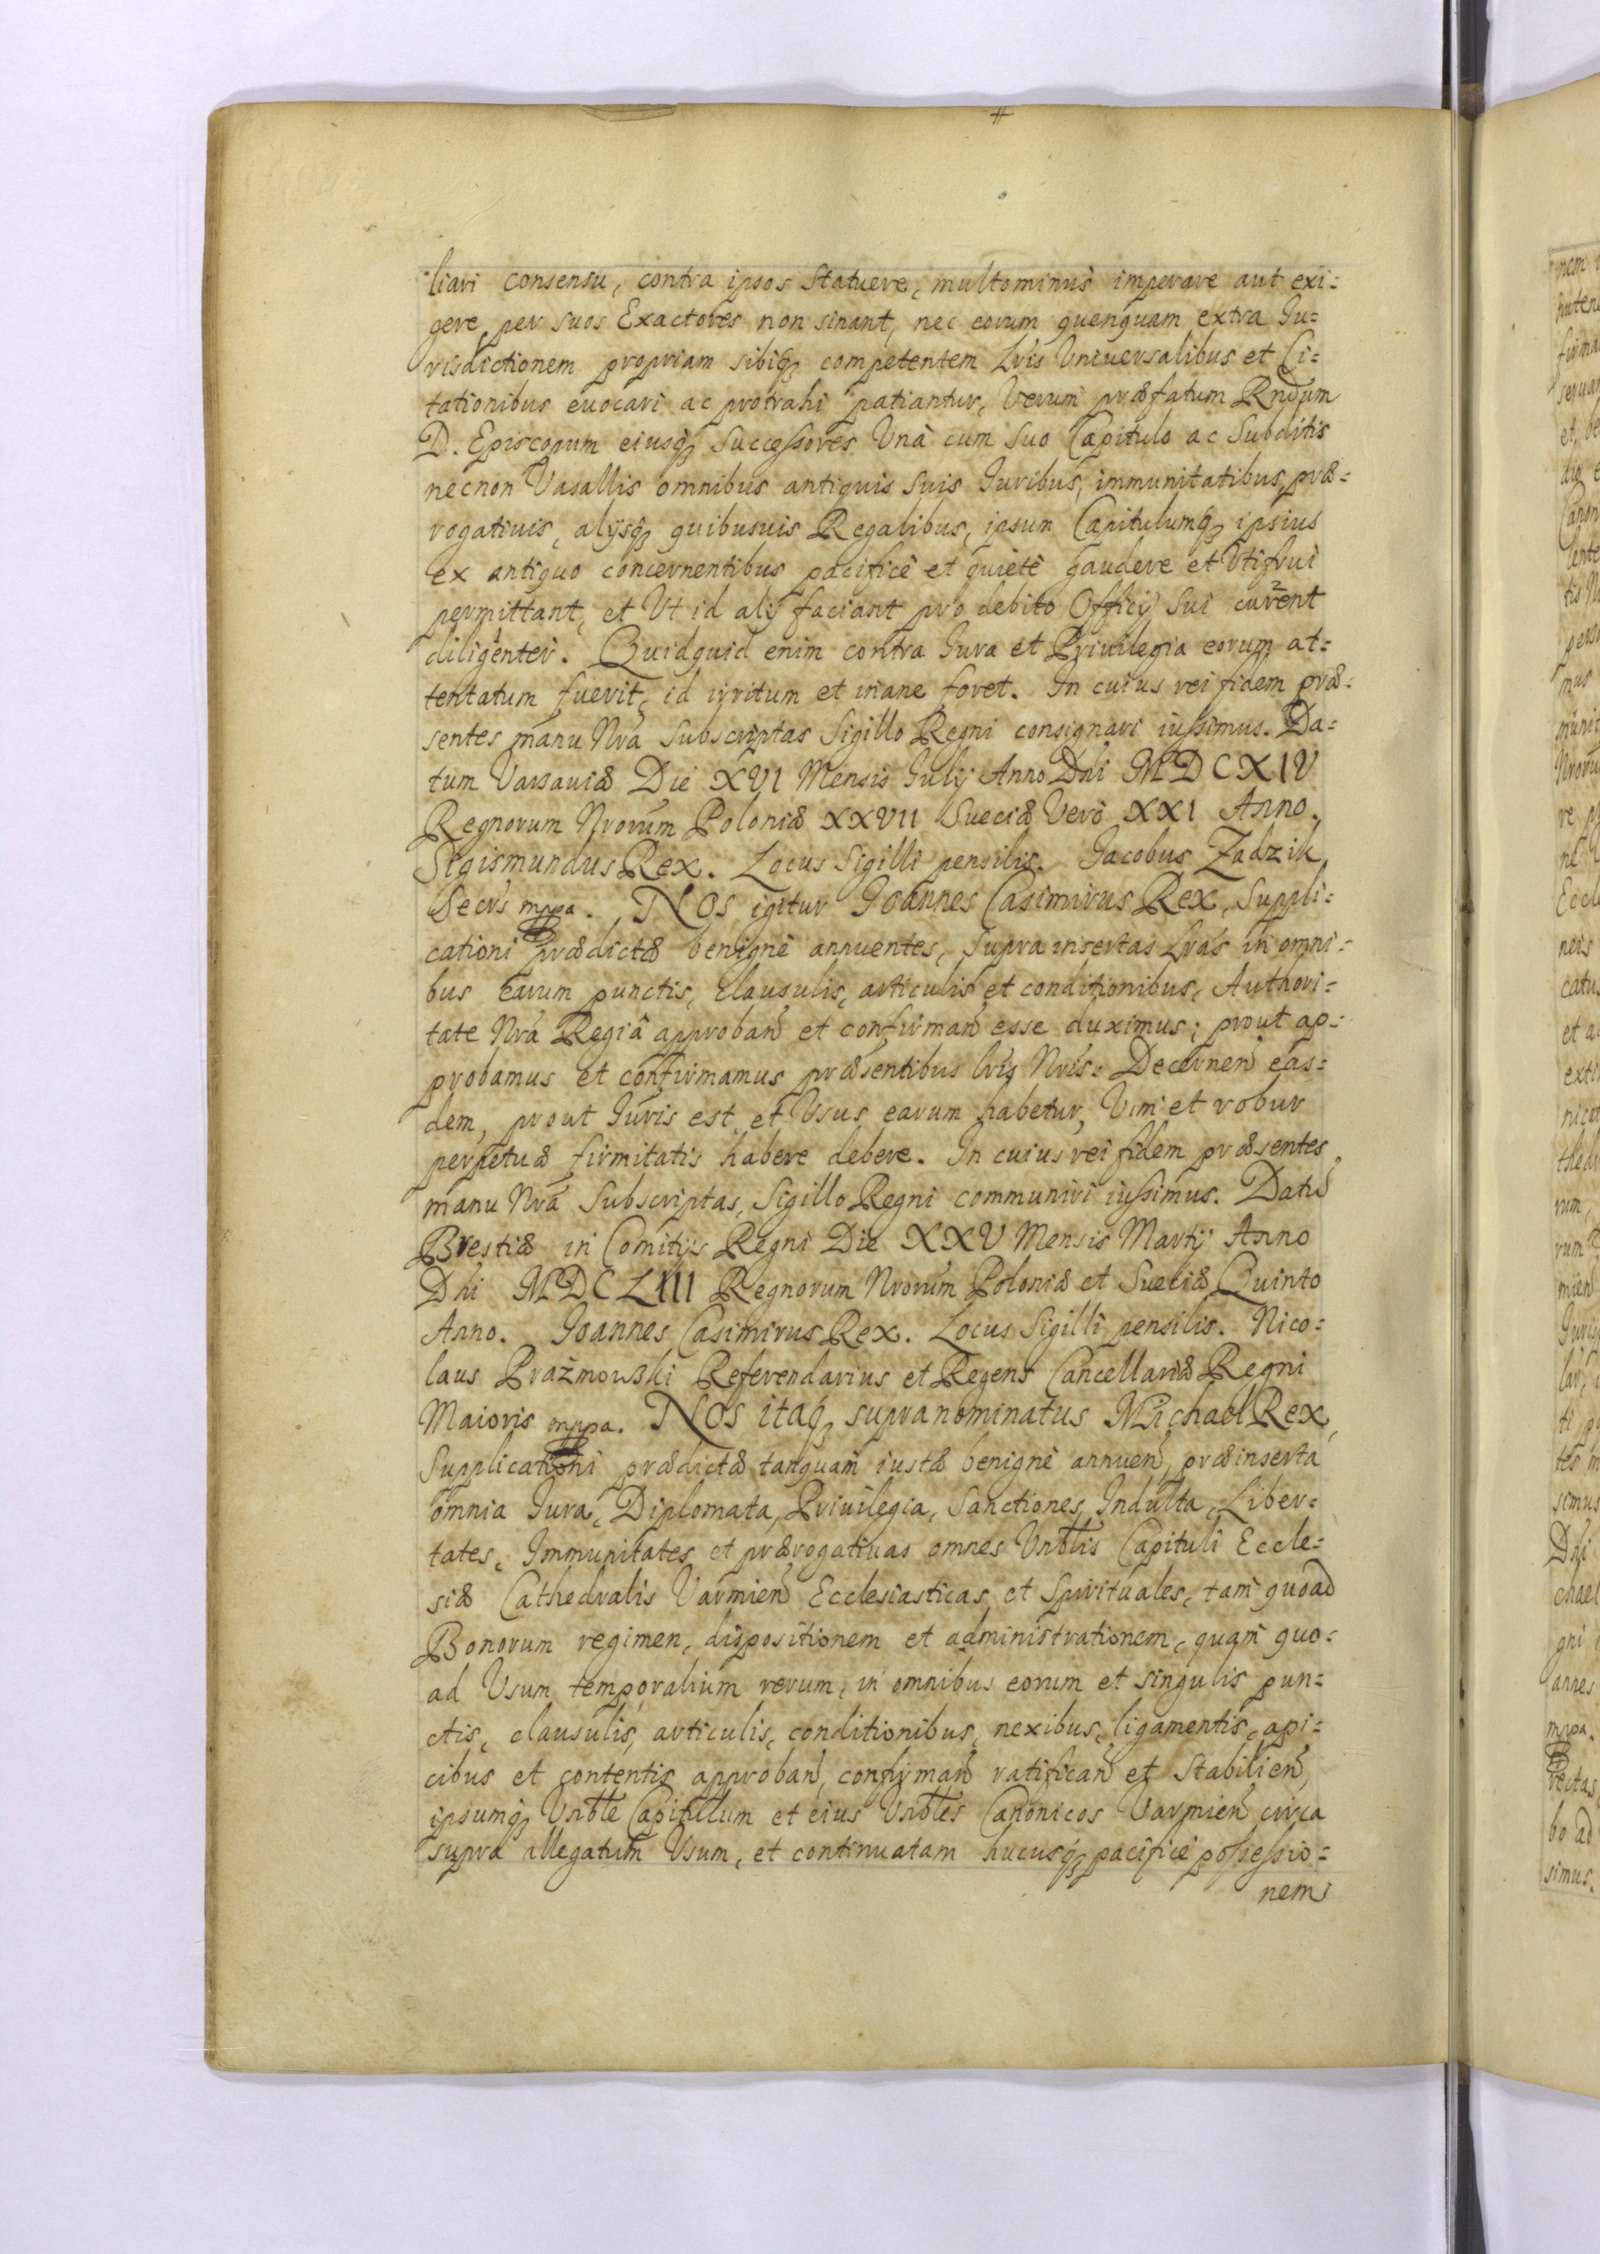 liari consensu, contra ipsos statuere, multominùs imperare aut exi=
gere per suos Exactores non sinant, nec eorum quenquam extra Iu=
risdictionem propriam sibiq3 competentem Lris Vniuersalibus et Ci=
tationibus euocari ac protrahi patiantur, Verum præfatum Rndum
D. Episcopum eiusq3 Successores Vnà cum suo Capitulo ac Subditis
necnon Vasallis omnibus antiquis suis Iuribus, immunitatibus, præ=
rogatiuis, alijsq3 quibusuis Regalibus, ipsum Capitulumq3 ipsius
ex antiquo concernentibus pacificè et quietè gaudere et Vtifrui
permittant, et Vt id alij faciant pro debito Officij sui curent
diligenter. Quidquid enim contra Iura et Priuilegia eorum at=
tentatum fuerit, id irritum et inane foret. In cuius rei fidem præ=
sentes manu Nrā subscriptas Sigillo Regni consignari iussimus. Da=
tum Varsauiæ Die XVI Mensis Iulij Anno Dni MDCXIV
Regnorum Nrorum Poloniæ XXVII Sueciæ Verò XXI Anno.
Sigismundus Rex. Locus Sigilli pensilis. Jacobus Zadzik,
Secrs mppa. NOS igitur Joannes Casimirus Rex, Suppli=
cationi prædictæ benignè annuentes, supra insertas Lras in omni=
bus earum punctis, clausulis, articulis et conditionibus, Authori=
tate Nrā Regiâ approbañ et confirmañ esse duximus; prout ap=
probamus et confirmamus præsentibus Lris Nris. Decerneñ eas=
dem, prout Iuris est et Vsus earum habetur, Vim et robur
perpetuæ firmitatis habere debere. In cuius rei fidem præsentes
manu Nrā subscriptas, Sigillo Regni communiri iussimus. Datū
Brestiæ in Comitijs Regni Die XXV Mensis Martij Anno
Dni MDCLIII Regnorum Nrorum Poloniæ et Sueciæ Quinto
Anno. Joannes Casimirus Rex. Locus Sigilli pensilis. Nico=
laus Prażmowski Referendarius et Regens Cancellariæ Regni
Maioris mppa. NOS itaq3 supranominatus Michael Rex,
Supplicationi prædictæ tanquam iustæ benignè annueñ, præinserta
omnia Iura, Diplomata, Priuilegia, Sanctiones, Indulta, Liber=
tates, Immunitates et prærogatiuas omnes Vnblis Capituli Eccle=
siæ Cathedralis Varmieñ Ecclesiasticas et Spirituales, tam quoad
Bonorum regimen, dispositionem et administrationem, quam quo=
ad Vsum temporalium rerum, in omnibus eorum et singulis pun=
ctis, clausulis, articulis, conditionibus, nexibus, ligamentis, api=
cibus et contentis approbañ, confirmañ ratificañ et stabilieñ,
ipsumq3 Vnble Capitulum et eius Vnbles Canonicos Varmieñ circa
supra allegatum Vsum, et continuatam hucusq3 pacificè possessio=
nem